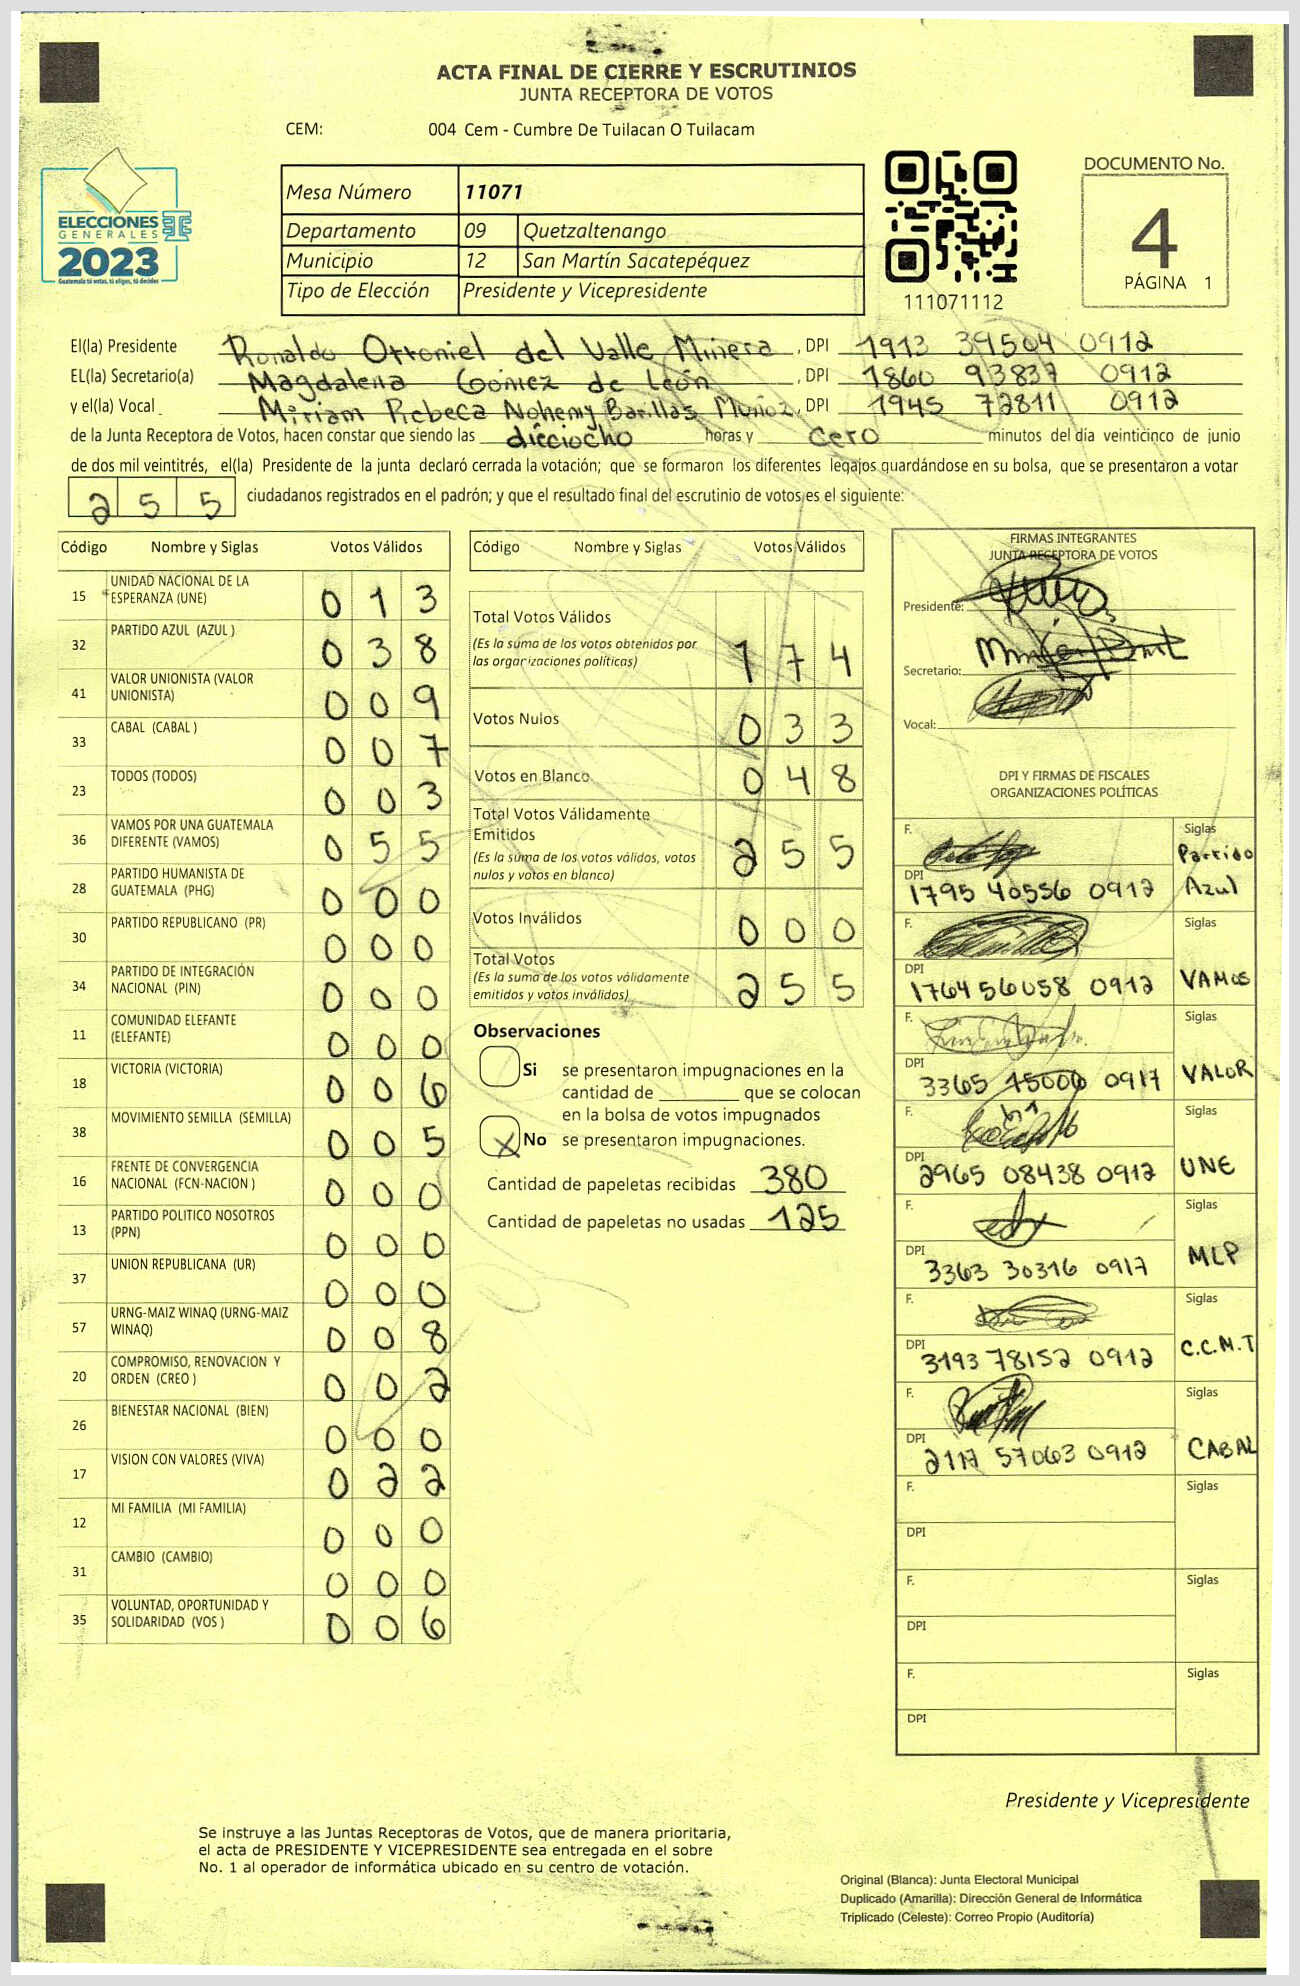 ACTA FINAL DE CIERRE Y ESCRUTINIOS
JUNTA RECEPTORA DE VOTOS
CEM: 004 Cem - Cumbre De Tuilacan O Tuilacam
ELECCIONES
GENERALES
2023
Guatemala tú votas, tú eliges, tú decides
Mesa Número 11071
Departamento 09 Quetzaltenango
Municipio 12 San Martín Sacatepéquez
Tipo de Elección Presidente y Vicepresidente
111071112
DOCUMENTO No.
4
PÁGINA 1
El(la) Presidente Ronaldo Ottoniel del Valle Miñera, DPI 1913 39504 0912
EL(la) Secretario(a) Magdalena Gómez de León, DPI 1860 93837 0912
y el(la) Vocal Miriam Rebeca Nohemy Barillas Muñoz, DPI 1945 72811 0912
de la Junta Receptora de Votos, hacen constar que siendo las dieciocho horas y cero minutos del día veinticinco de junio
de dos mil veintitrés, el(la) Presidente de la junta declaró cerrada la votación; que se formaron los diferentes legajos guardándose en su bolsa, que se presentaron a votar
255 ciudadanos registrados en el padrón; y que el resultado final del escrutinio de votos es el siguiente:
Código Nombre y Siglas Votos Válidos
15 UNIDAD NACIONAL DE LA ESPERANZA (UNE) 013
32 PARTIDO AZUL (AZUL ) 038
41 VALOR UNIONISTA (VALOR UNIONISTA) 009
33 CABAL (CABAL ) 007
23 TODOS (TODOS) 003
36 VAMOS POR UNA GUATEMALA DIFERENTE (VAMOS) 055
28 PARTIDO HUMANISTA DE GUATEMALA (PHG) 000
30 PARTIDO REPUBLICANO (PR) 000
34 PARTIDO DE INTEGRACIÓN NACIONAL (PIN) 000
11 COMUNIDAD ELEFANTE (ELEFANTE) 000
18 VICTORIA (VICTORIA) 006
38 MOVIMIENTO SEMILLA (SEMILLA) 005
16 FRENTE DE CONVERGENCIA NACIONAL (FCN-NACION ) 000
13 PARTIDO POLITICO NOSOTROS (PPN) 000
37 UNION REPUBLICANA (UR) 000
57 URNG-MAIZ WINAQ (URNG-MAIZ WINAQ) 008
20 COMPROMISO, RENOVACION Y ORDEN (CREO ) 002
26 BIENESTAR NACIONAL (BIEN) 000
17 VISION CON VALORES (VIVA) 022
12 MI FAMILIA (MI FAMILIA) 000
31 CAMBIO (CAMBIO) 000
35 VOLUNTAD, OPORTUNIDAD Y SOLIDARIDAD (VOS ) 006
Código Nombre y Siglas Votos Válidos
Total Votos Válidos
(Es la suma de los votos obtenidos por las organizaciones políticas) 174
Votos Nulos 033
Votos en Blanco 048
Total Votos Válidamente Emitidos
(Es la suma de los votos válidos, votos nulos y votos en blanco) 255
Votos Inválidos 000
Total Votos
(Es la suma de los votos válidamente emitidos y votos inválidos) 255
Observaciones
Si se presentaron impugnaciones en la
cantidad de ________ que se colocan
en la bolsa de votos impugnados
X No se presentaron impugnaciones.
Cantidad de papeletas recibidas 380
Cantidad de papeletas no usadas 125
FIRMAS INTEGRANTES
JUNTA RECEPTORA DE VOTOS
Presidente:
Secretario:
Vocal:
DPI Y FIRMAS DE FISCALES
ORGANIZACIONES POLÍTICAS
F. Siglas
DPI 1795 40556 0912 Partido Azul
F. Siglas
DPI 1764 56058 0912 VAMOS
F. Siglas
DPI 3365 15006 0917 VALOR
F. Siglas
DPI 2965 08438 0912 UNE
F. Siglas
DPI 3363 30316 0917 MLP
F. Siglas
DPI 3193 78152 0912 C.C.M.T
F. Siglas
DPI 2117 57063 0912 CABAL
F. Siglas
DPI
F. Siglas
DPI
F. Siglas
DPI
Presidente y Vicepresidente
Se instruye a las Juntas Receptoras de Votos, que de manera prioritaria,
el acta de PRESIDENTE Y VICEPRESIDENTE sea entregada en el sobre
No. 1 al operador de informática ubicado en su centro de votación.
Original (Blanca): Junta Electoral Municipal
Duplicado (Amarilla): Dirección General de Informática
Triplicado (Celeste): Correo Propio (Auditoría)